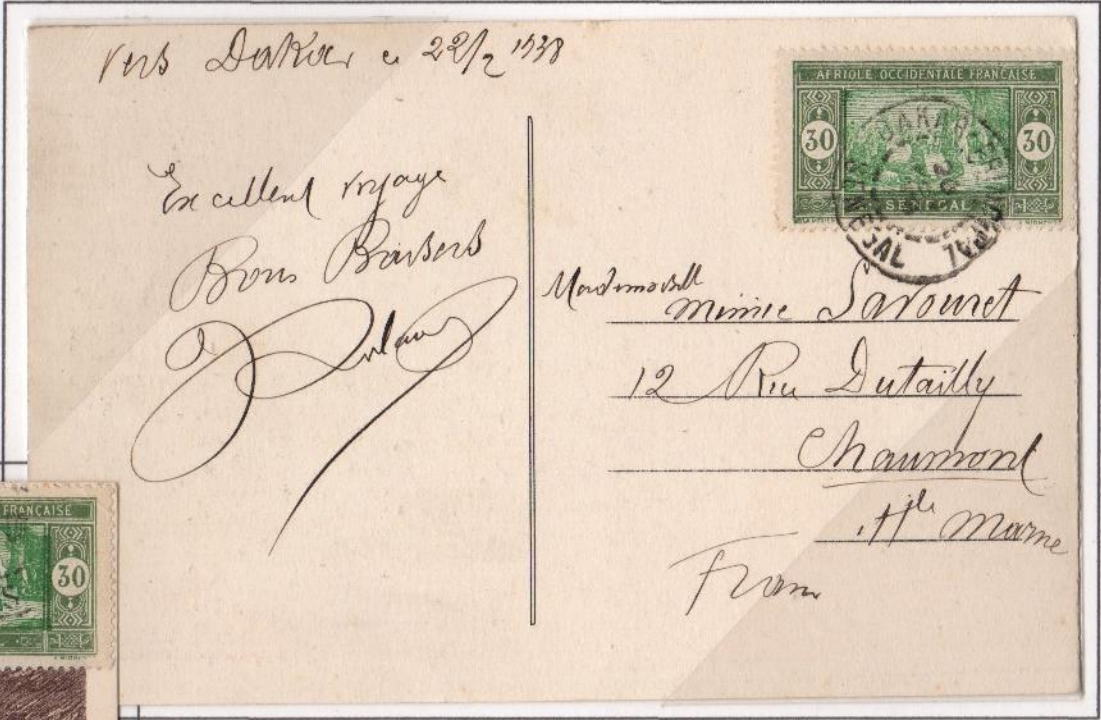 Vers Dakar le 22/2 1938
Excellent voyage
Bons Baisers
AFRIQUE OCCIDENTALE FRANÇAISE
30
30
SÉNÉGAL
DAKAR
SENEGAL
Mademoiselle
Mimie Savouret
12 Rue Dutailly
Chaumont
Hte Marne
France
FRANÇAISE
30